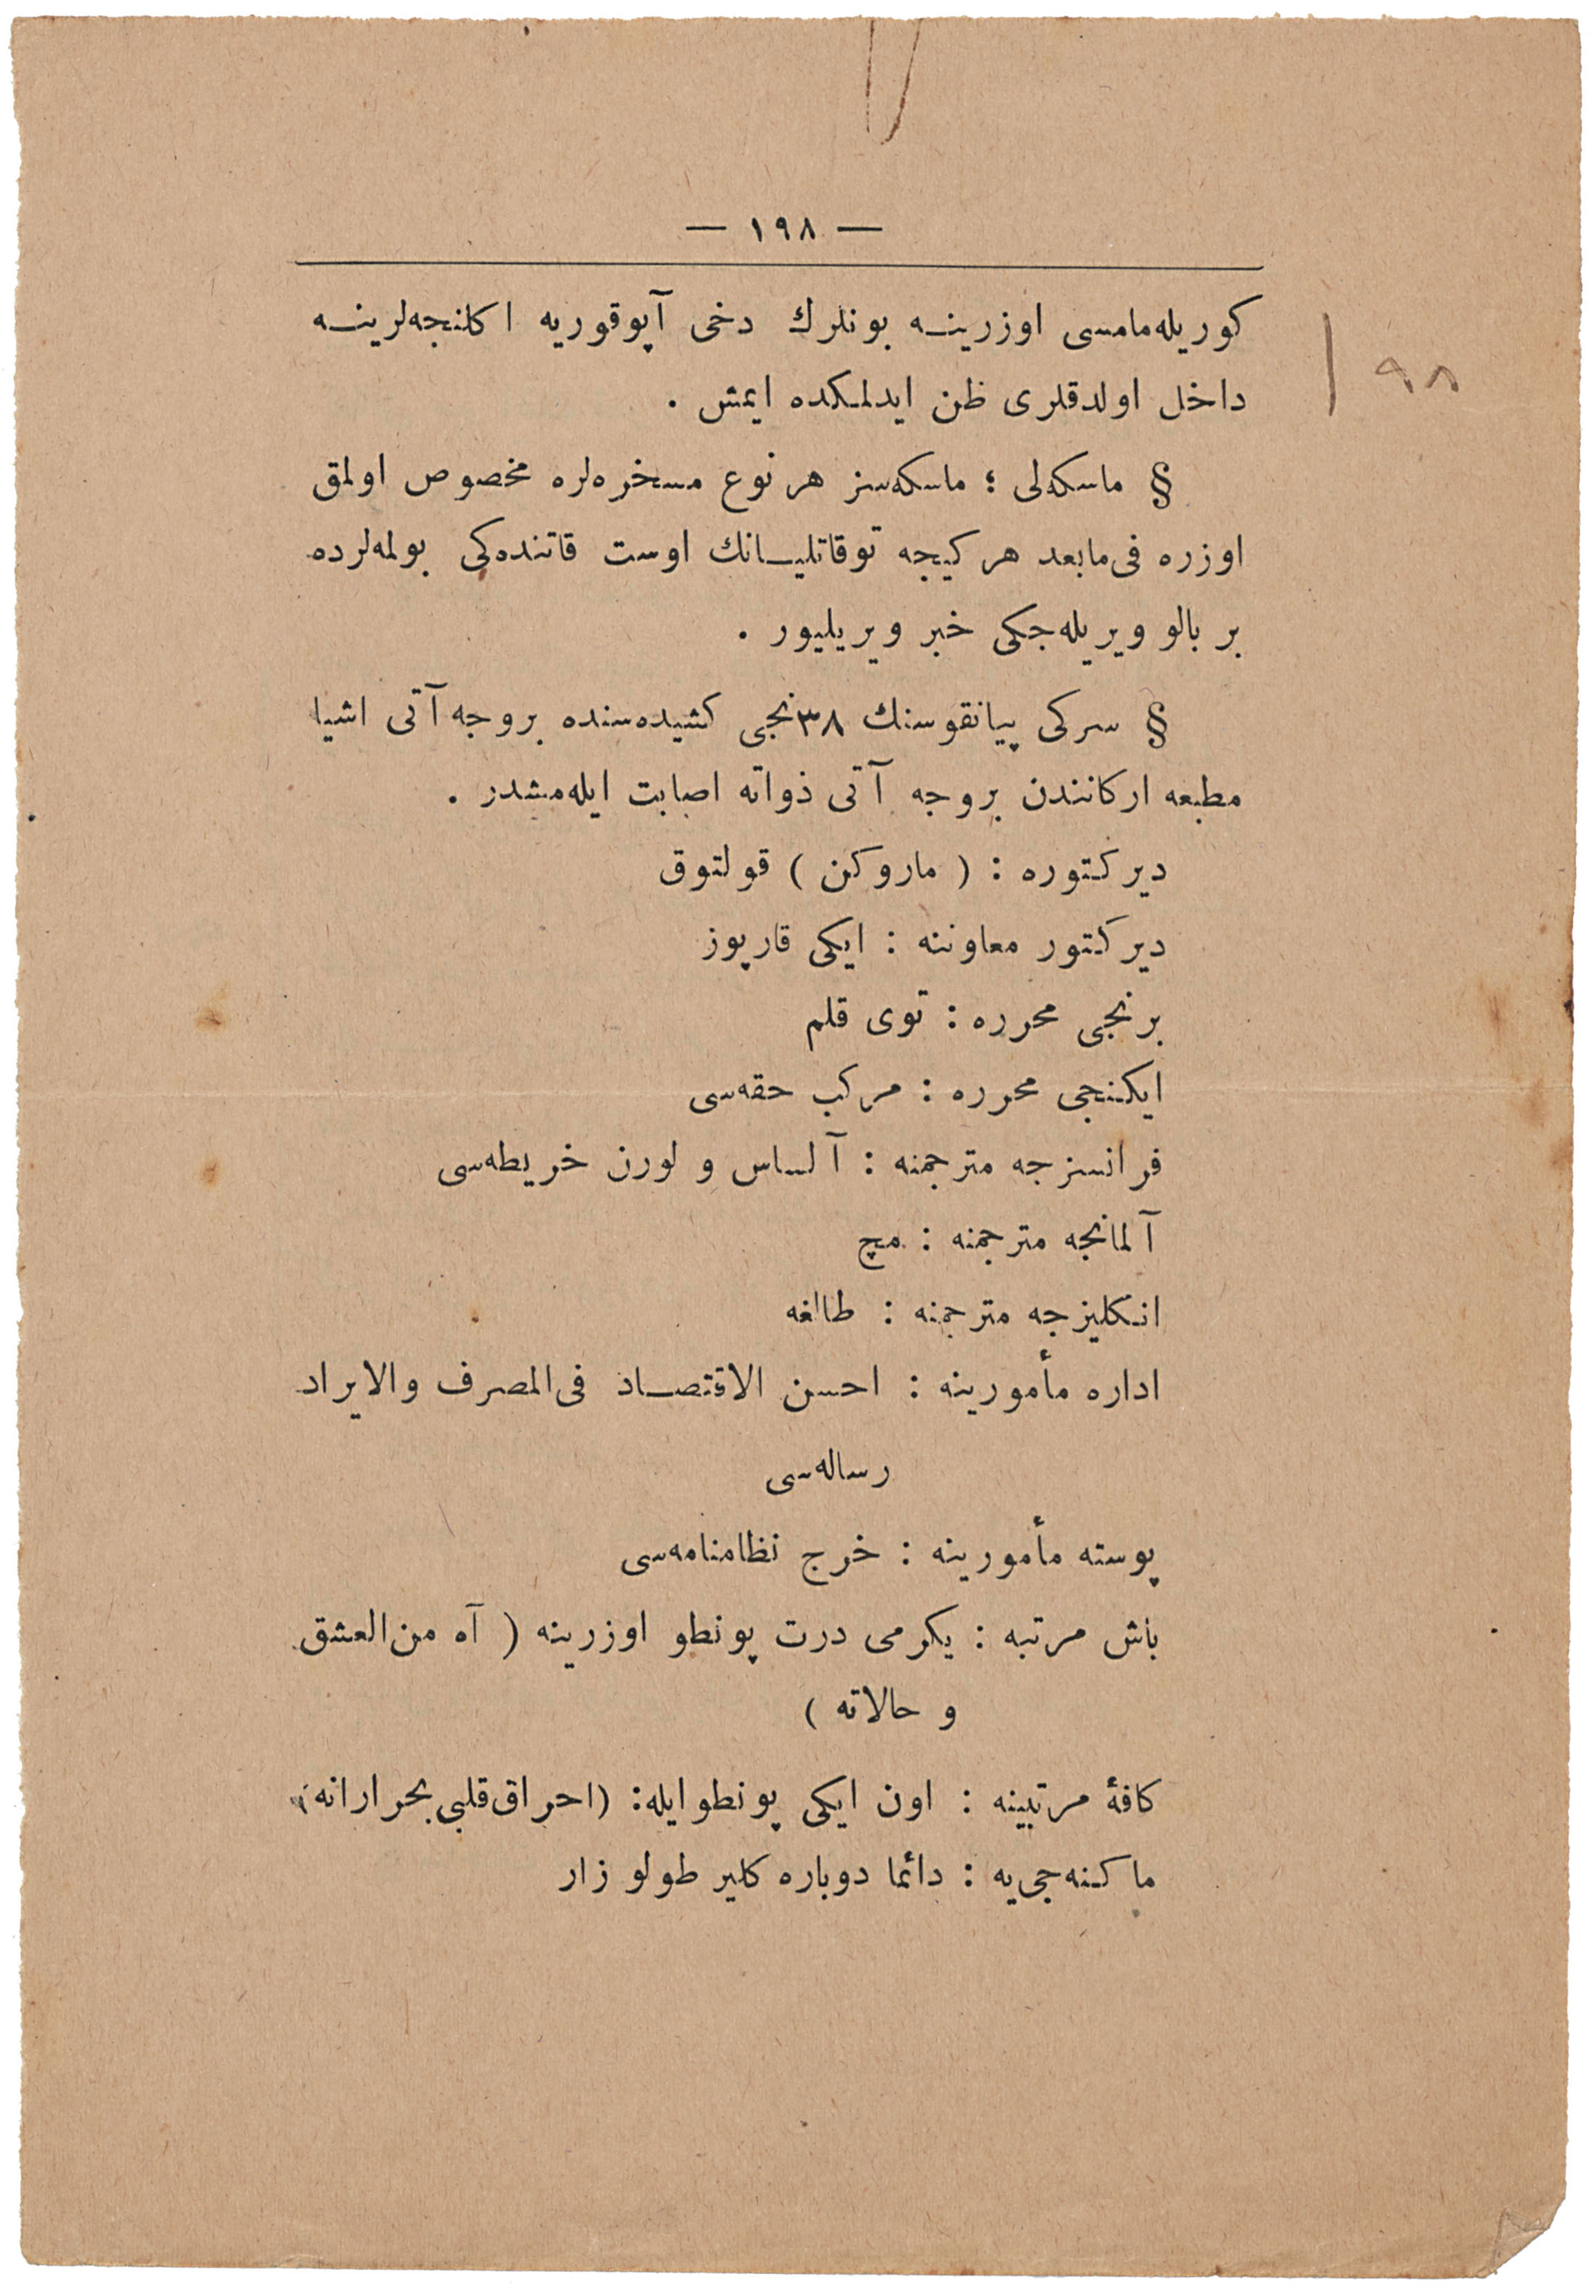 — ١٩٨ —
كوريله‌مامسى اوزرينه بونلرك دخى آپوقوريه اكلنجه‌لرينه
٩٨
داخل اولدقلرى ظن ايدلمكده ايمش .
§ ماسكه‌لى ؛ ماسكه‌سز هر نوع مسخره‌لره مخصوص اولمق
اوزره فى‌مابعد هر كيجه توقاتليانك اوست قاتنده‌كى بولمه‌لرده
بر بالو ويريله‌جكى خبر ويريليور .
§ سركى پيانقوسنك ٣٨نجى كشيده‌سنده بروجه آتى اشيا
مطبعه اركانندن بروجه آتى ذواته اصابت ايله‌مشدر .
ديركتوره : ( ماروكن ) قولتوق
ديركتور معاوننه : ايكى قارپوز
برنجى محرره : توى قلم
ايكنجى محرره : مركب حقه‌سى
فرانسزجه مترجمنه : آلساس و لورن خريطه‌سى
آلمانجه مترجمنه : مچ
انكليزجه مترجمنه : طالغه
اداره مأمورينه : احسن الاقتصاد فى‌المصرف والايراد
رساله‌سى
پوسته مأمورينه : خرج نظامنامه‌سى
باش مرتبه : يكرمى درت پونطو اوزرينه ( آه من‌العشق
و حالاته )
كافهٔ مرتبينه : اون ايكى پونطو ايله : (احراق قلبى بحرارانه)
ماكنه‌جى‌يه : دائما دوباره كلير طولو زار